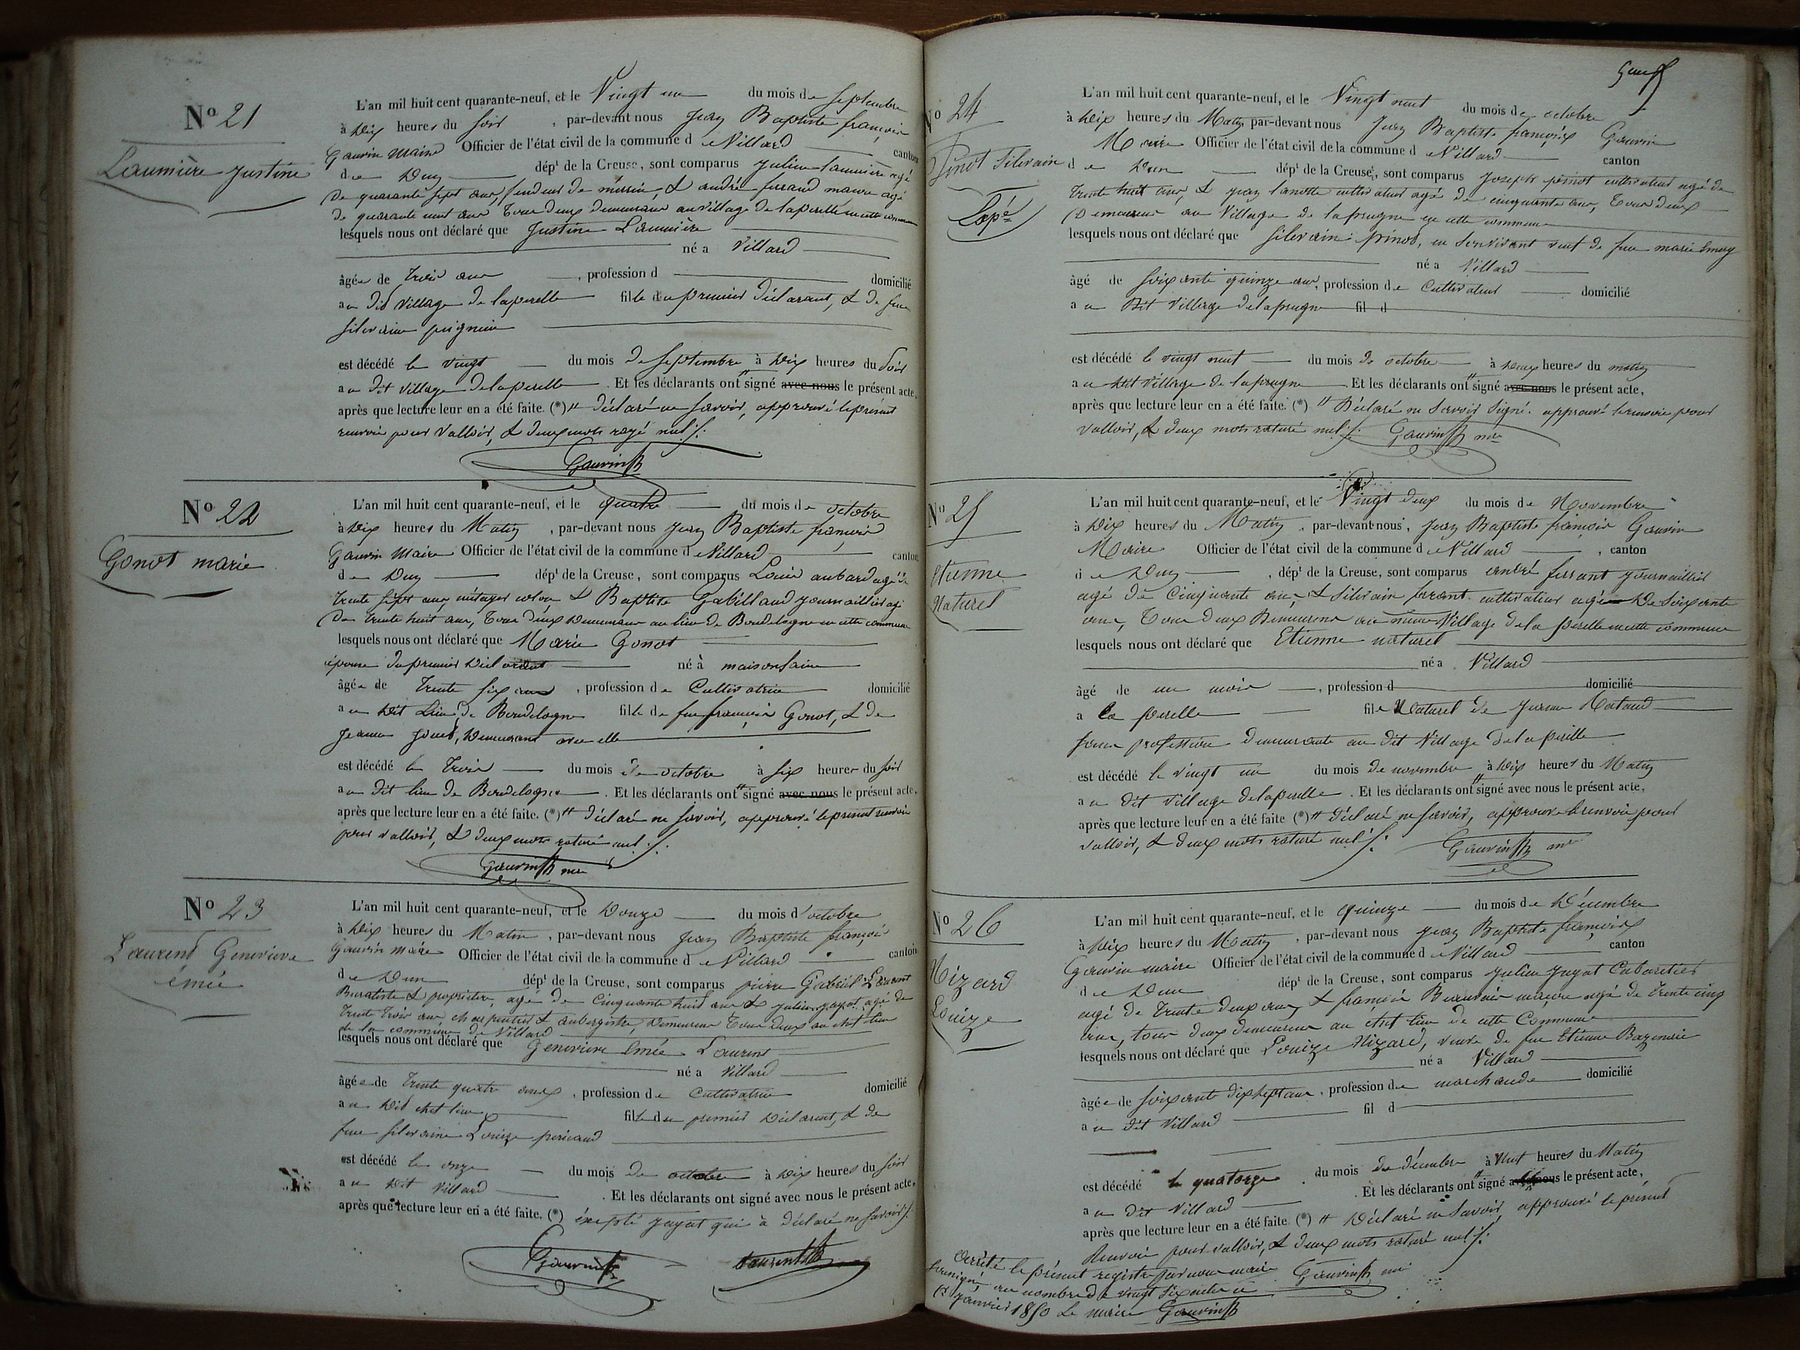 N° 21
Laumière Justine
L'an mil huit cent quarante-neuf, et le Vingt un du mois de septembre
à dix heures du soir, par-devant nous Jean Baptiste françois
Gauvin Maire Officier de l'état civil de la commune de Villard canton
de Dun dépt de la Creuse, sont comparus julien laumière agé
de quarante sept ans, fendeur de merrin, & andré ferrand macon agé
de quarante huit ans Tous deux demeurant au village de laperelle en cette commune
lesquels nous ont déclaré que Justine Laumière
né a Villard
âgée de trois ans, profession d domiciliée
au dit village de laperelle fille du premier déclarant, & de feue
silvaine
est décédé le vingt du mois de septembre à dix heures du soir
au dit village de laperelle. Et les déclarants ont " signé avec nous le présent acte,
après que lecture leur en a été faite. (*) " déclaré ne savoir, approuvé le présent
renvoi pour valloir, & deux mots rayé nul ./.
GauvinJB
N° 22
Gonot marie
L'an mil huit cent quarante-neuf, et le quatre du mois de octobre
à dix heures du Matin, par-devant nous Jean Baptiste francois
Gauvin Maire Officier de l'état civil de la commune de Villard canton
de Dun dépt de la Creuse, sont comparus Louis aubard agé de
trente sept ans métayer colon & Baptiste Gabilland journaillier agé
de trente huit ans, Tous deux Demeurant au lieu de Boudelogne en cette commune
lesquels nous ont déclaré que Marie Gonot
épouse du premier déclarant né à maisonfaine
âgée de trente six ans, profession de Cultivatrice domicilié
au dit Lieu de Boudelogne fille de feu francois Gonot, & de
jeanne, Demeurant avec elle
est décédé le trois du mois de octobre à six heures du soir
au dit lieu de Boudelogne. Et les déclarants ont " signé avec nous le présent acte,
après que lecture leur en a été faite. (*) " déclaré ne savoir, approuvé le présent renvoi
pour valloir, & deux mots raturé nul ./.
GauvinJB mre
N° 23
Laurent Genevieve
émée
L'an mil huit cent quarante-neuf, et le Douze du mois d'octobre
à dix heures du Matin, par-devant nous Jean Baptiste françois
Gauvin maire Officier de l'état civil de la commune de Villard canton
de Dun dépt de la Creuse, sont comparus pierre Gabriel Laurent
Buraliste & propriétaire, agé de cinquante huit ans & julien jayot agé de
trente trois ans charpentier & aubergiste, Demeurant Tous deux au chef lieu
de la commune de Villard
lesquels nous ont déclaré que Genevieve Emée Laurent
né a Villard
âgée de trente quatre ans, profession de Cultivatrice domicilié
au dit chef lieu fille du premier déclarant, & de
feue silvaine Louize pericaud
est décédé le onze du mois de octobre à dix heures du soir
au dit Villard. Et les déclarants ont signé avec nous le présent acte,
après que lecture leur en a été faite. (*) éxepté jayot qui à déclaré ne savoir ./.
GauvinJB LaurentJB
N° 24
Pinot Silvain
L'an mil huit cent quarante-neuf, et le Vingt neuf du mois de octobre
à dix heures du Matin par-devant nous Jean Baptiste françois Gauvin
Maire Officier de l'état civil de la commune de Villard canton
de Dun dépt de la Creuse, sont comparus Joseph pinot cultivateur agé de
trente huit ans, & jean lamotte cultivateur agé de cinquante ans, Tous deux
Demeurant au Village de laprugne en cette commune
lesquels nous ont déclaré que silvain pinot, en son vivant veuf de feue marie Emery
né a Villard
âgé de soixante quinze ans, profession de Cultivateur domicilié
au Dit Village de laprugne fil d
est décédé le vingt neuf du mois de octobre à deux heures du matin
au dit Village de laprugne. Et les déclarants ont " signé avec nous le présent acte,
après que lecture leur en a été faite. (*) " Déclaré ne savoir signé. approuvé le renvoi pour
valloir, & deux mots raturé nul ./. GauvinJB mre
N° 25
Etienne
Naturel
L'an mil huit cent quarante-neuf, et le Vingt deux du mois de Novembre
à dix heures du Matin, par-devant nous, Jean Baptiste francois Gauvin
Maire Officier de l'état civil de la commune de Villard, canton
de Dun, dépt de la Creuse, sont comparus andré ferrant journaillier
agé de cinquante ans, & silvain cultivateur agé de soixante
ans, Tous deux Demeurant au même Village de la perelle en cette commune
lesquels nous ont déclaré que Etienne naturel
né a Villard
âgé de un mois, profession d domicilié
a La perelle fils Naturel de
sans profession demeurante au dit Village de la perelle
est décédé le vingt un du mois de novembre à dix heures du Matin
au dit village de laperelle. Et les déclarants ont " signé avec nous le présent acte,
après que lecture leur en a été faite (*) " déclaré ne savoir, approuvé le renvoi pour
valloir, & deux mots raturé nul ./. GauvinJB mre
N° 26
Nizard
Louize
L'an mil huit cent quarante-neuf, et le quinze du mois de Décembre
à dix heures du Matin, par-devant nous Jean Baptiste françois
Gauvin maire Officier de l'état civil de la commune de Villard canton
de Dun dépt de la Creuse, sont comparus julien jayot Cabaretier
agé de trente deux ans, & françois Beauvais maçon agé de trente cinq
ans, tous deux demeurant au chef lieu de cette Commune
lesquels nous ont déclaré que Louize Nizard, veuve de feu Etienne
né a Villard
âgée de soixante dix sept ans, profession de marchande domicilié
au dit Villard fil d
est décédé le quatorze du mois de décembre à huit heures du Matin
au dit Villard. Et les déclarants ont " signé avec nous le présent acte,
après que lecture leur en a été faite (*) " Déclaré ne savoir, approuvé le présent
Renvoi pour valloir, & deux mots raturé nul ./.
Arrêté le présent registre par nous maire GauvinJB mre
soussigné au nombre de vingt six actes ce
janvier 1850 Le maire GauvinJB